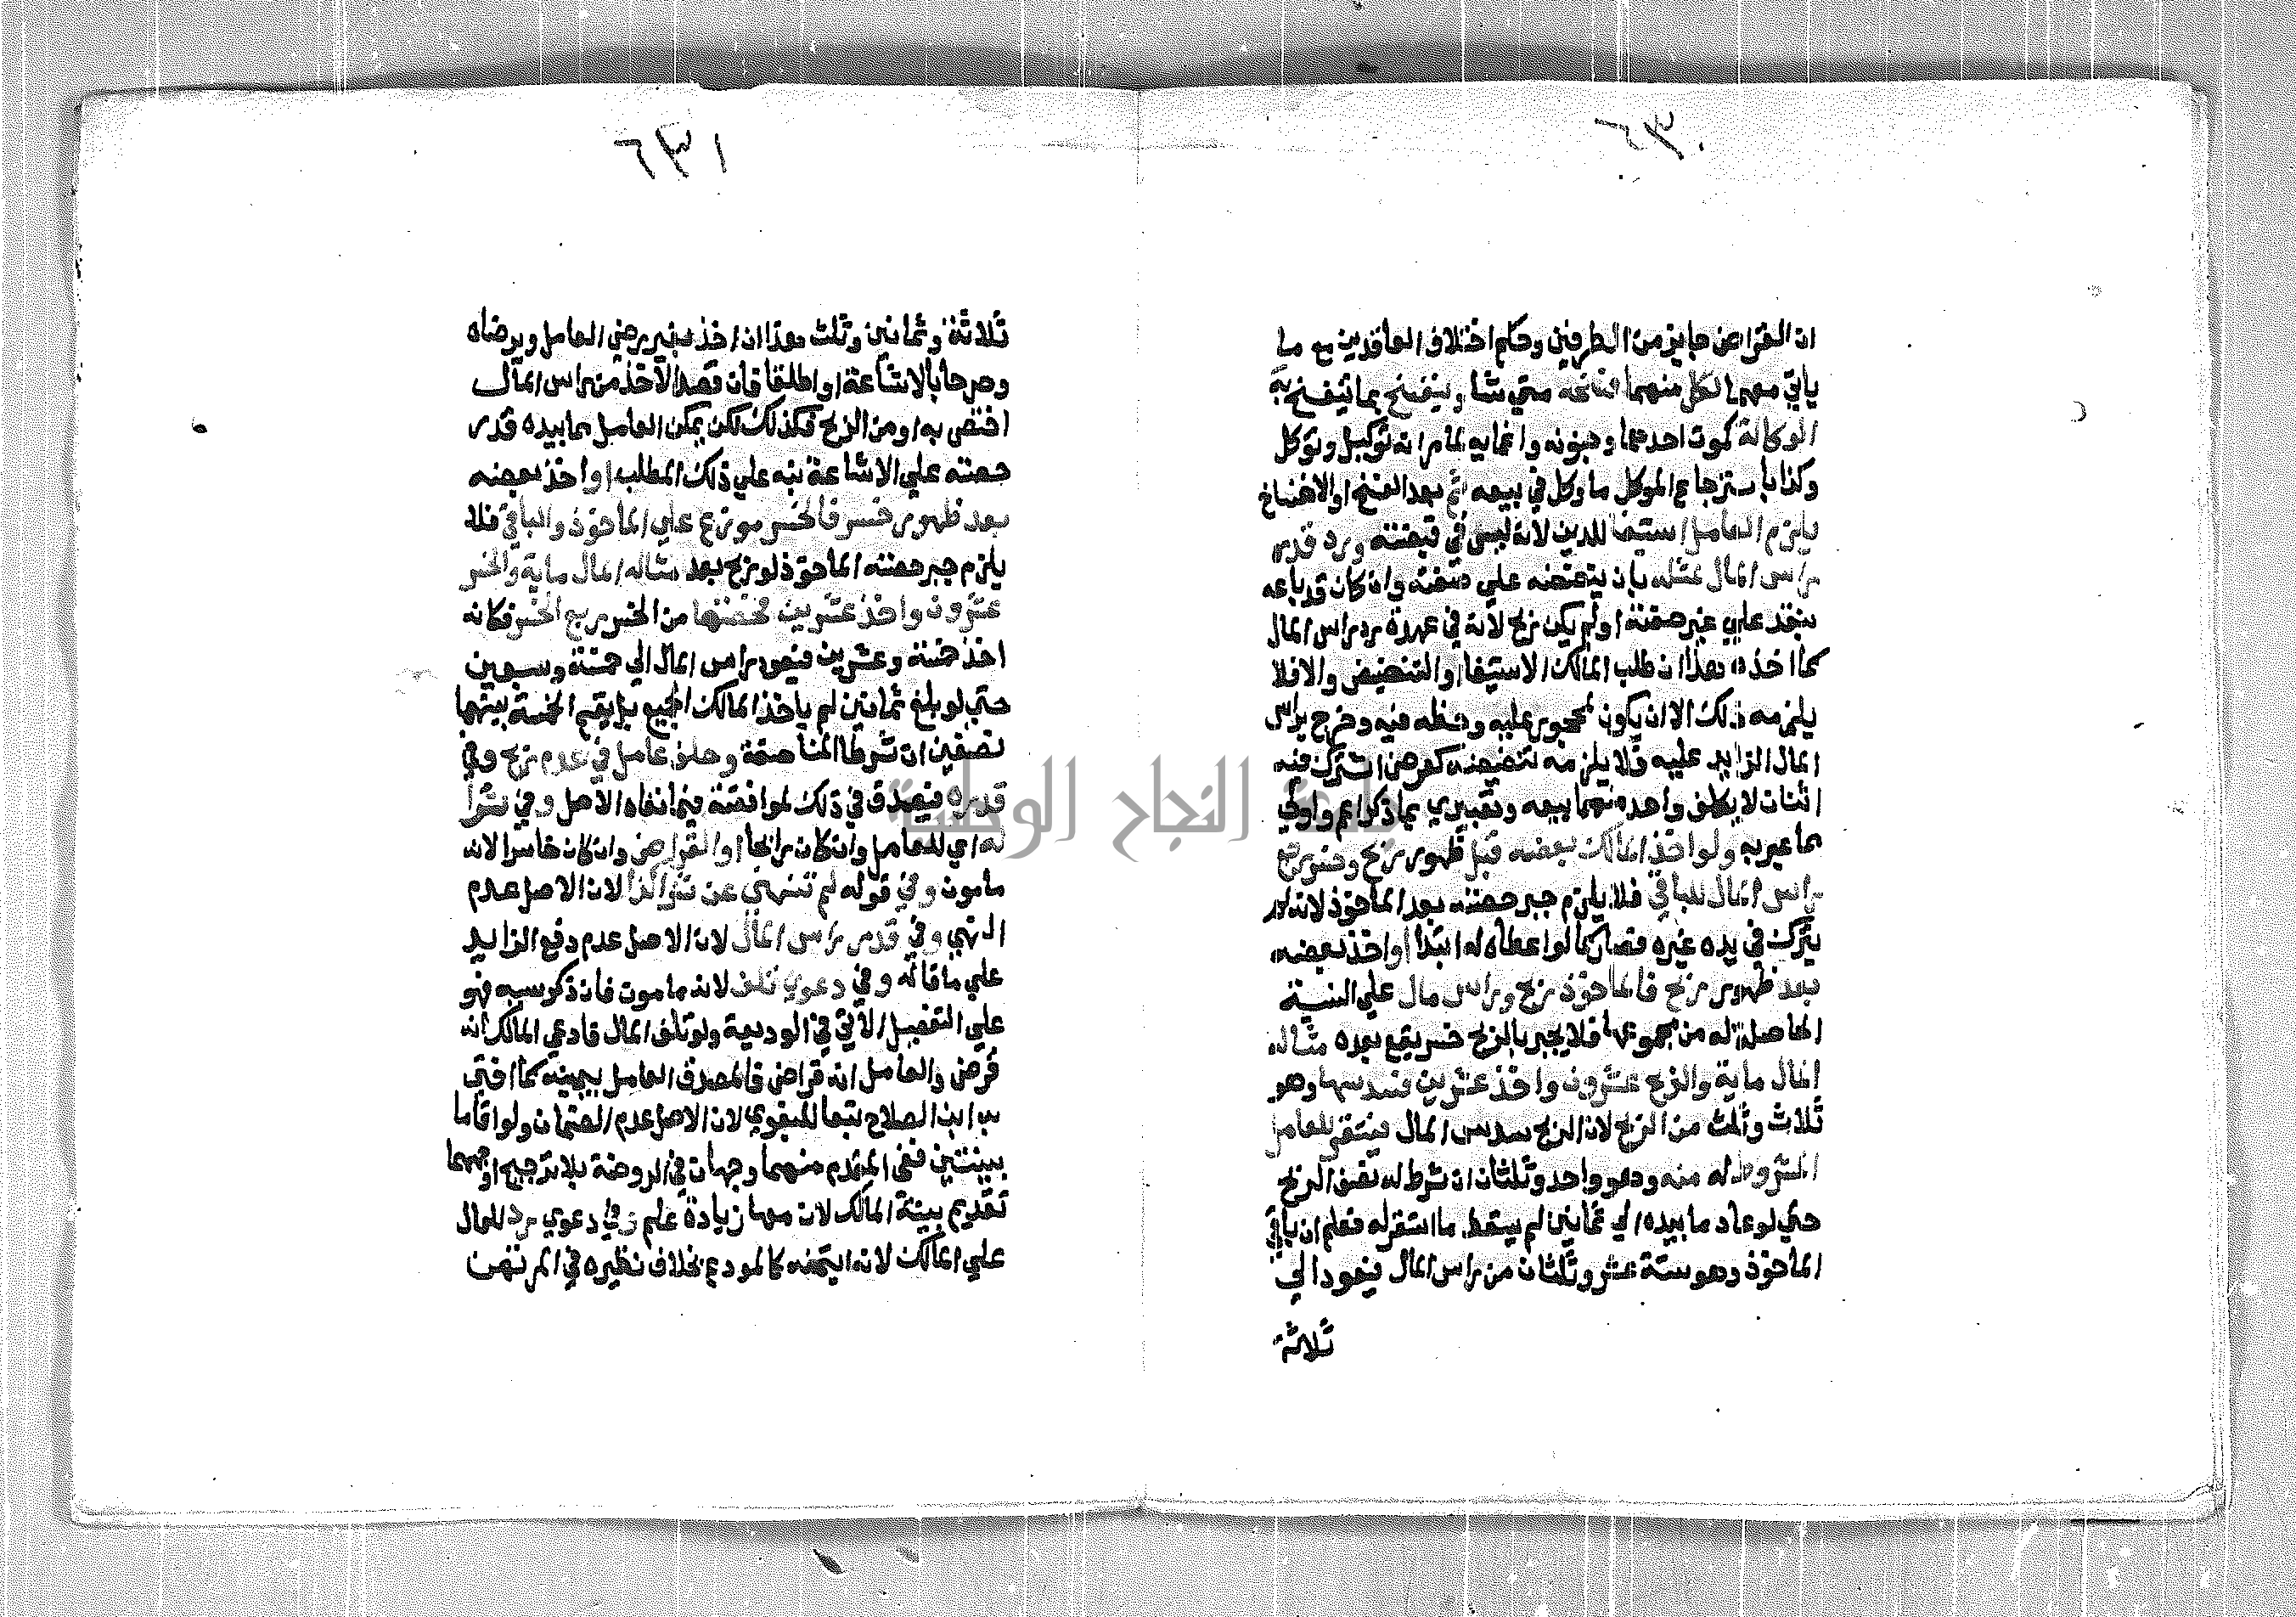 ٦٣٠
ان القراض جايز من الطرفين وحكم اختلاف العاقدين مع ما
ياتي معهما لكل منهما فسخه متي شا وينفسخ بما تنفسخ به
الوكالة كموت احدهما وجنونه واغمايه لما مر انه توكيل وتوكل
وكذا باسترجاع الموكل ما وكل في بيعه ثم بعد الفسخ او الانفساخ
يلزم العامل استيفا للدين لانه ليس في قبضته ورد قدر
راس المال لمثله بان ينضضه علي صفته وان كان قد باعه
بنقد علي غير صفته اولم يكن ربح لانه في عهدة رد راس المال
كما اخذه هذا ان طلب المالك الاستيفا او التنضيض والا فلا
يلزمه ذلك الا ان يكون لمحجور عليه وحظه فيه وخرج براس
المال الزايد عليه فلا يلزمه تنضيضه كعرض اشترك فيه
اثنان لا يكلف واحد منهما بيعه وتعبيري بما ذكر اعم واولي
مما عبر به ولو اخذ المالك بعضه قبل ظهور ربح وخسر رجع
راس المال للباقي فلا يلزم جبر حصته بعد الماخوذ لانه لم
يترك في يده غيره فصار كما لو اعطاه له ابتدا او اخذ بعضه
بعد ظهور ربح فالماخوذ ربح وراس مال علي النسبة
الحاصلة له من مجموعهما فلا يجبر بالربح خسر يقع بعده مثاله
المال ماية والربح عشرون واخذ عشرين فسدسها وهو
ثلاث وثلث من الربح لان الربح سدس المال فيستقر للعامل
المشروط له منه وهو واحد وثلثان ان شرط له نصف الربح
حتي لو عاد ما بيده الي ثمانين لم يسقط ما استقر له فعلم ان باقي
الماخوذ وهو ستة عشر وثلثان من راس المال فيعود الي
ثلاثة
٦٣١
ثلاثة وثمانين وثلث هذا ان اخذ بغير رضي العامل وبرضاه
وصرحا بالاشاعة او اطلقا فان قصد الاخذ من راس المال
اختص به او من الربح فكذلك لكن يمكن العامل مما بيده قدر
حصته علي الاشاعة نبه علي ذلك المطلب او اخذ بعضه
بعد ظهور خسر فالخسر موزع علي الماخوذ والباقي فلا
يلزم جبر حصته الماخوذ لو ربح بعد مثاله المال ماية والخسر
عشرون واخذ عشرين فحصتها من الخسر ربع الخسر فكانه
اخذ خمسة وعشرين فيعود راس المال الي خمسة وسبعين
حتي لو بلغ ثمانين لم ياخذ المالك الجميع بل يقسم الخمسة بينهما
نصفين ان شرطا المناصفة وحلف عامل في عدم ربح وفي
قدره فيصدق في ذلك لموافقته فيما نفاه الاصل وفي شرا
له اي للعامل وان كان رابحا او القراض وان كان خاسرا لانه
مامون وفي قوله لم تنهني عن شرا كذا لان الاصل عدم
النهي وفي قدر راس المال لان الاصل عدم دفع الزايد
علي ما قاله وفي دعوي تلف لانه مامون فان ذكر سببه فهو
علي التفصيل الاتي في الوديعة ولو تلف المال فادعي المالك انه
قرض والعامل انه قراض فالمصدق العامل بيمينه كما افتي
به ابن الصلاح تبعا للبغوي لان الاصل عدم الضمان ولو اقاما
بينتين ففي المقدم منهما وجهان في الروضة بلا ترجيح اوجههما
تقديم بينة المالك لان معها زيادة علم وفي دعوي رد المال
علي المالك لانه ايتمنه كالمودع بخلاف نظيره في المرتهن
جامعة النجاح الوطنية